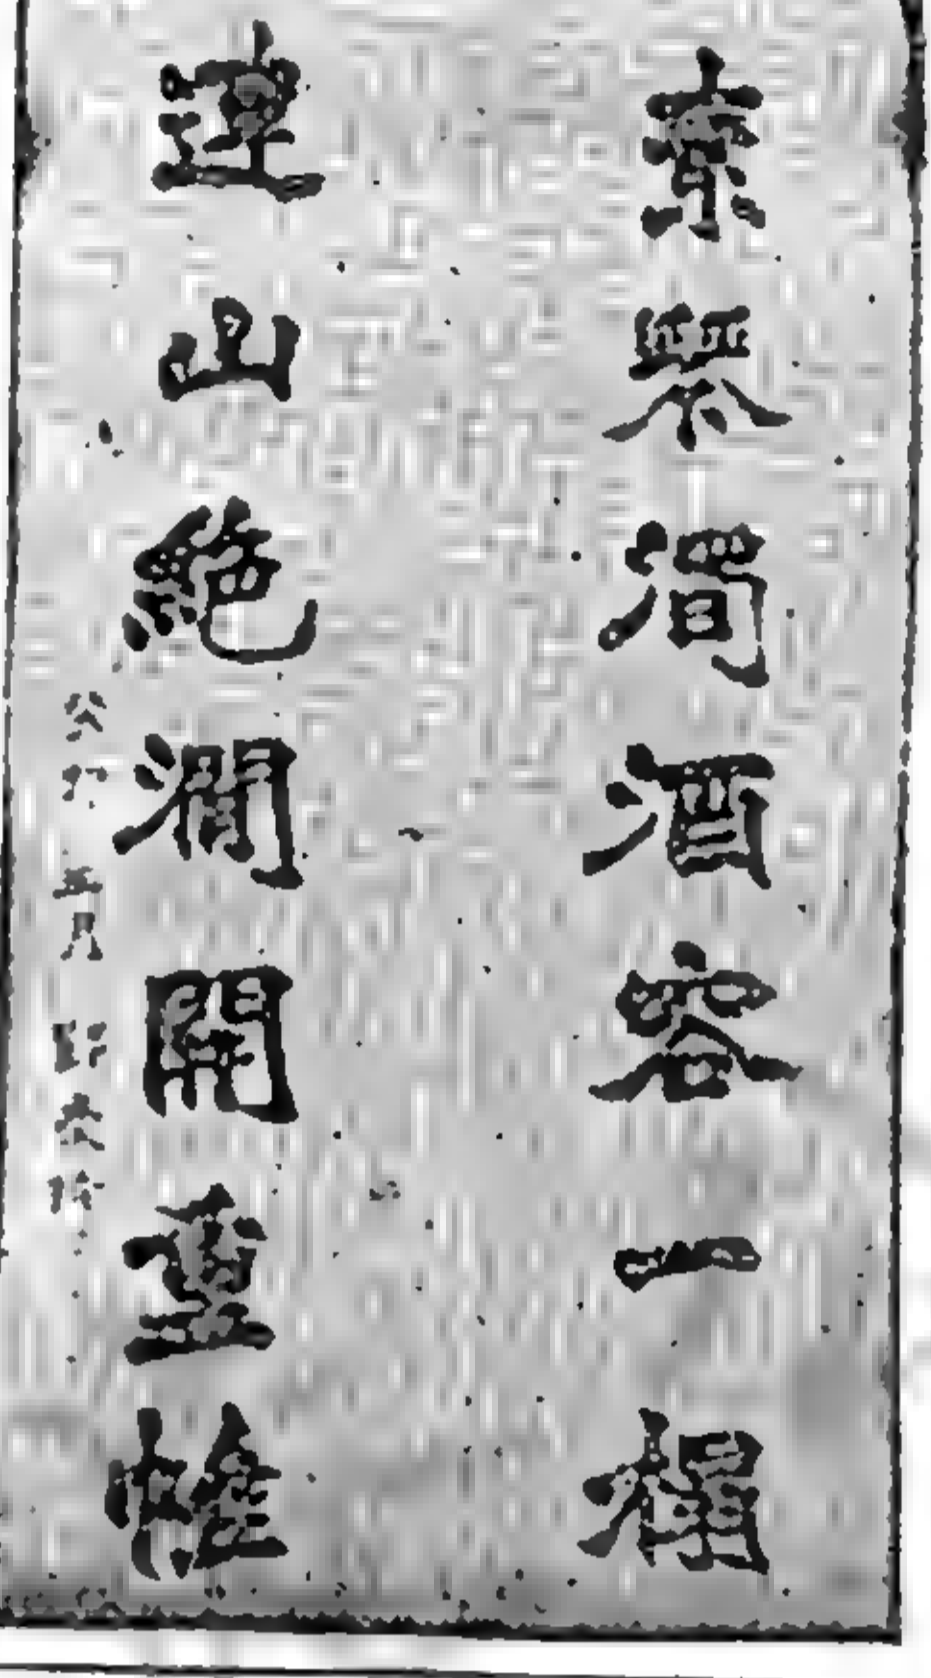 素琴濁酒容一榻
連山絕澗開重帷
五月